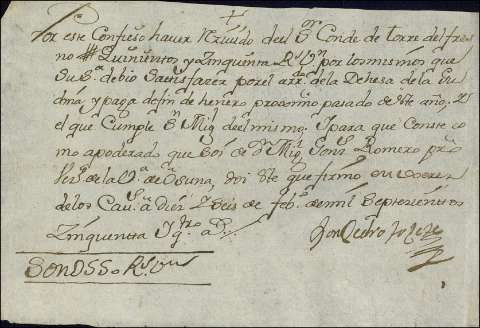 Por este Confieso haver Rezivido del Sr Conde de torre del fres
no Quinientos y Zinquenta Rs Vn por los mismos que
Su Sa debio Satisfazer por el arrto de la Dehesa de la
y paga de fin de henero proximo pasado de este año,
el que Cumple Sn Migl del mismo. Y para que Conste co
mo apoderado que soi de Dn Migl Gonz Romero
de la Va de Osuna, doi este que firmo en Xerez
de los Cavos a Diez y seis de febo de mil Septezientos
Zinquenta y qtro as
Don Pedro
Son 550 Rs Vn